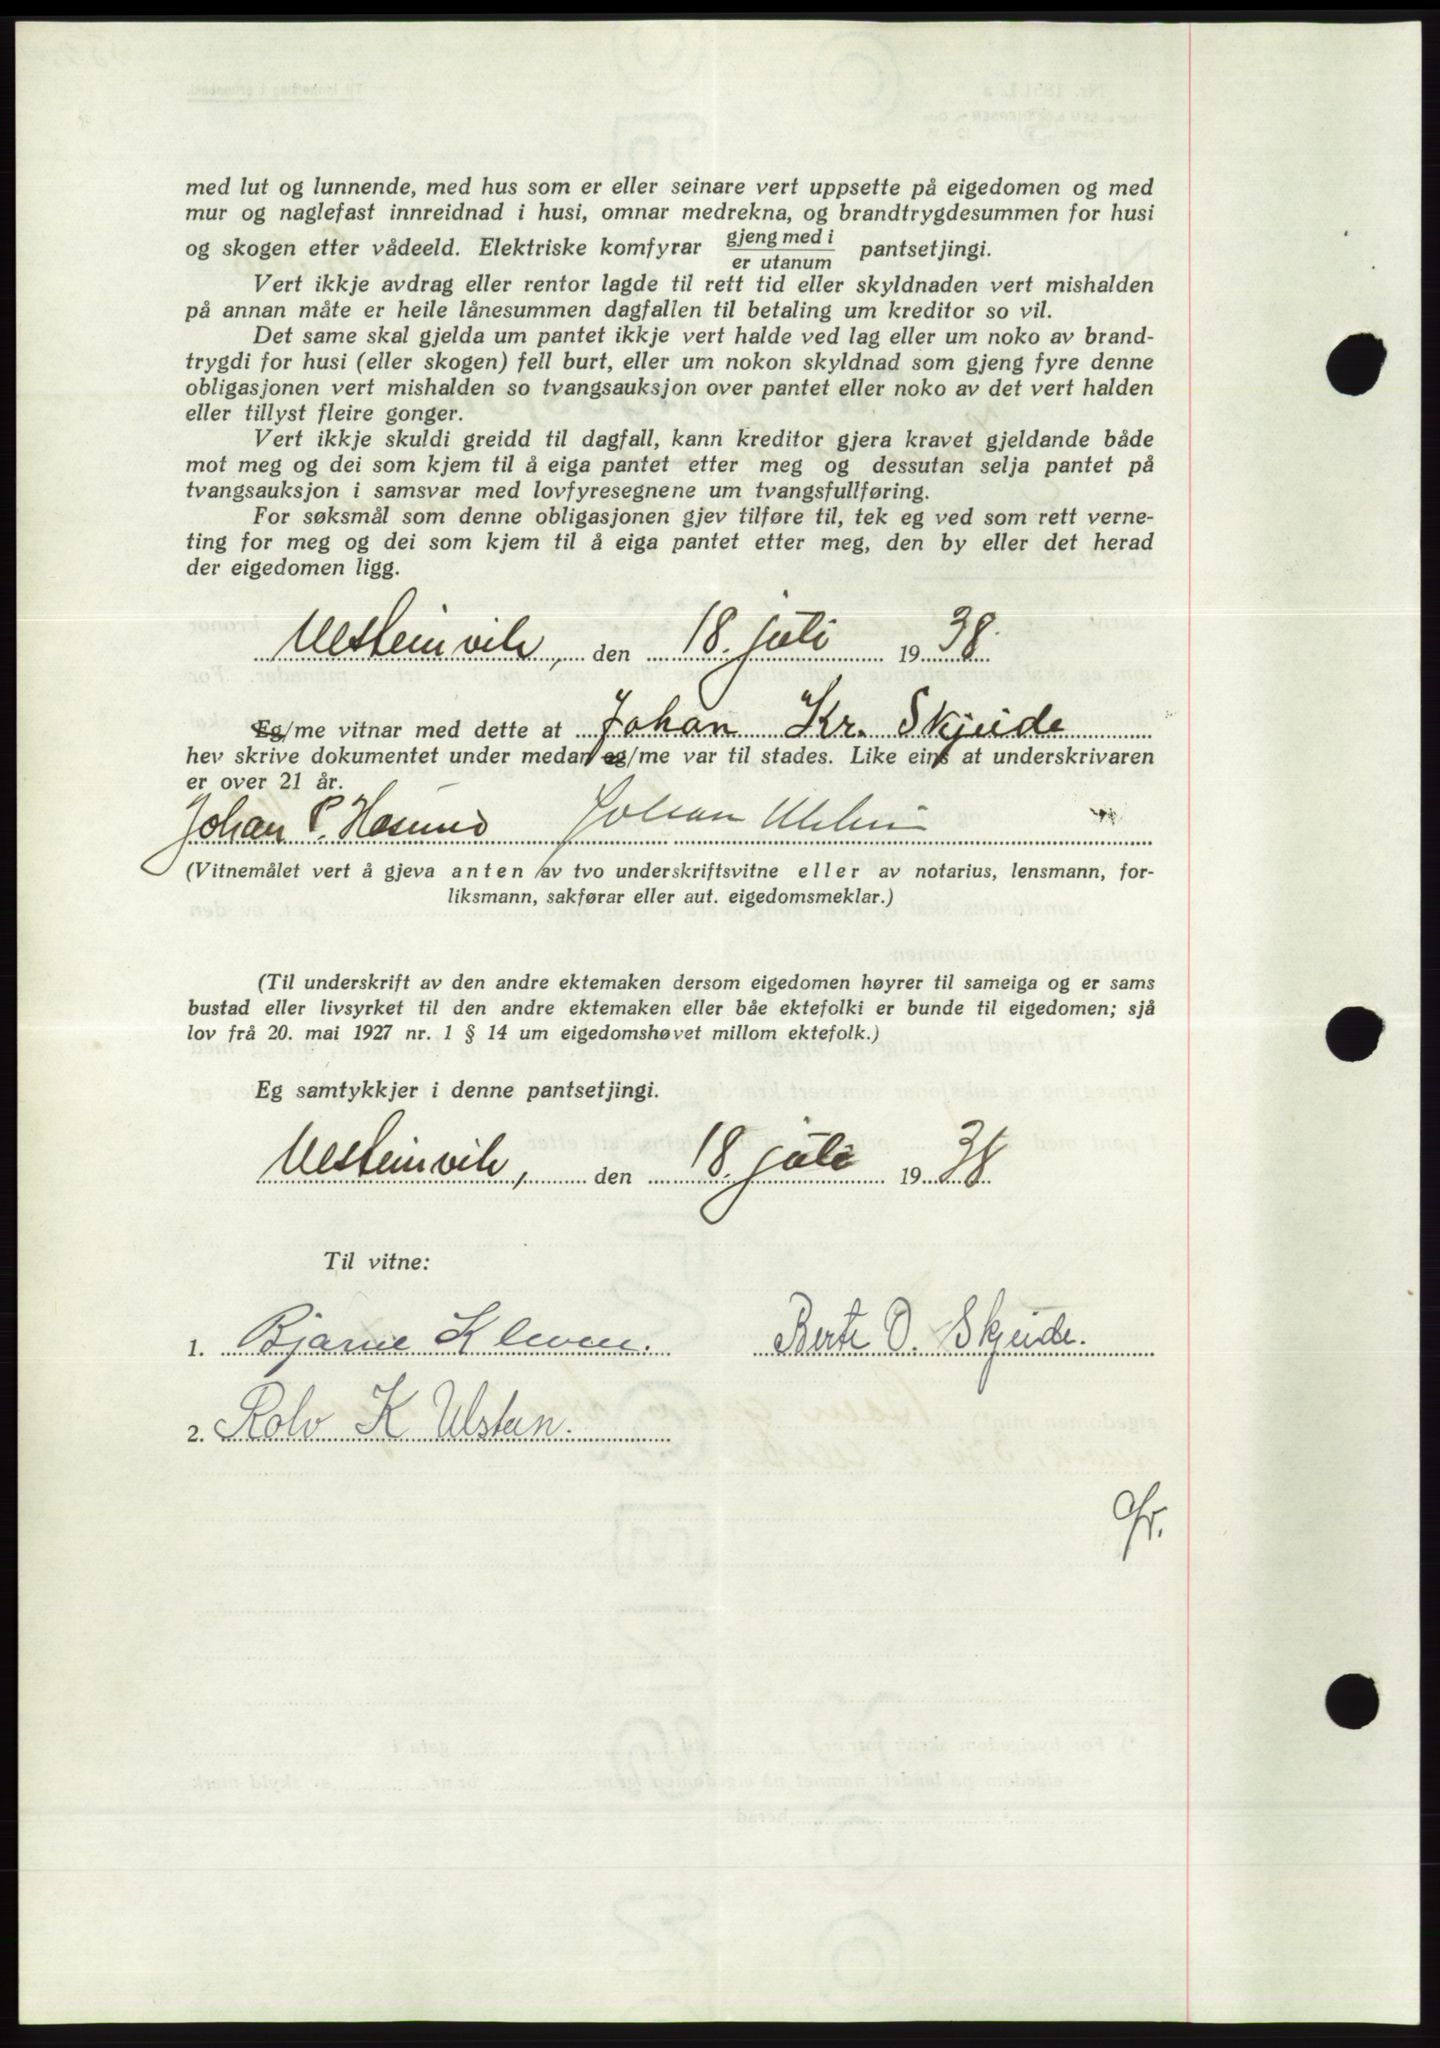 med lut og lunnende, med hus som er eller seinare vert uppsette på eigedomen og med
mur og naglefast innreidnad i husi, omnar medrekna, og brandtrygdesummen for husi
og skogen etter vådeeld. Elektriske komfyrar gjeng med i / er utanum pantsetjingi.
Vert ikkje avdrag eller rentor lagde til rett tid eller skyldnaden vert mishalden
på annan måte er heile lånesummen dagfallen til betaling um kreditor so vil.
Det same skal gjelda um pantet ikkje vert halde ved lag eller um noko av brand-
trygdi for husi (eller skogen) fell burt, eller um nokon skyldnad som gjeng fyre denne
obligasjonen vert mishalden so tvangsauksjon over pantet eller noko av det vert halden
eller tillyst fleire gonger.
Vert ikkje skuldi greidd til dagfall, kann kreditor gjera kravet gjeldande både
mot meg og dei som kjem til å eiga pantet etter meg og dessutan selja pantet på
tvangsauksjon i samsvar med lovfyresegnene um tvangsfullføring.
For søksmål som denne obligasjonen gjev tilføre til, tek eg ved som rett verne-
ting for meg og dei som kjem til å eiga pantet etter meg, den by eller det herad
der eigedomen ligg.
Ulsteinvik, den 18. juli 1938.
Eg/me vitnar med dette at Johan Kr. Skjeide
hev skrive dokumentet under medan eg/me var til stades. Like eins at underskrivaren
er over 21 år.
Johan P. Hasund Johan Ulstein
(Vitnemålet vert å gjeva anten av tvo underskriftsvitne eller av notarius, lensmann, for-
liksmann, sakførar eller aut. eigedomsmeklar.)
(Til underskrift av den andre ektemaken dersom eigedomen høyrer til sameiga og er sams
bustad eller livsyrket til den andre ektemaken eller båe ektefolki er bunde til eigedomen; sjå
lov frå 20. mai 1927 nr. 1 § 14 um eigedomshøvet millom ektefolk.)
Eg samtykkjer i denne pantsetjingi.
Ulsteinvik, den 18. juli 1938
Til vitne:
1. Bjarne Kleven. Berte O. Skjeide.
2. Rolv K Ulstein.